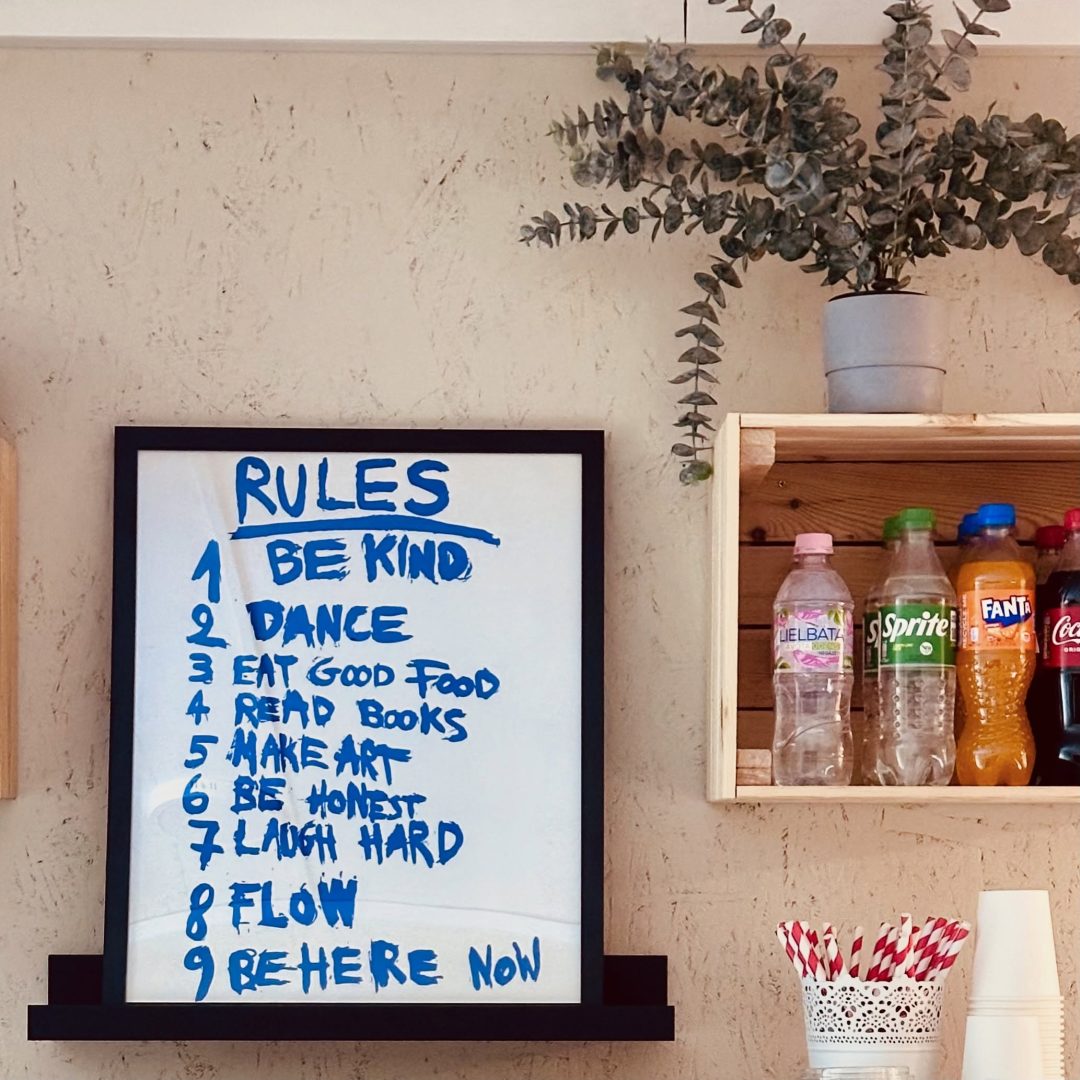 RULES
1 BE KIND
2 DANCE
3 EAT GOOD FOOD
4 READ BOOKS
5 MAKE ART
6 BE HONEST
7 LAUGH HARD
8 FLOW
9 BE HERE NOW
LIELBATA
Sprite
FANTA